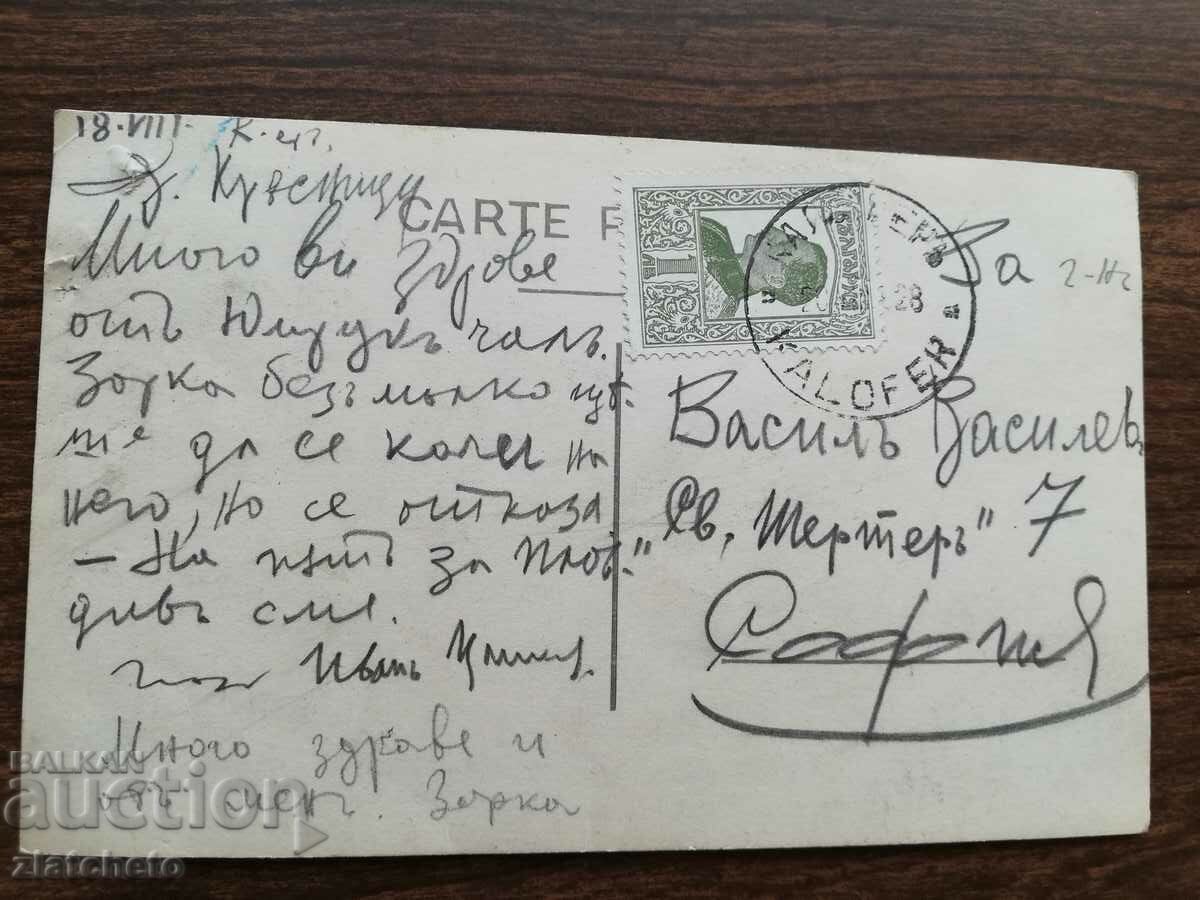 18.VIII.
CARTE
Много ви здраве
отъ Юмрукъ чалъ.
Зорка безъ малко
ше да се качи на
него, но се отказа
– На пътъ за Плов-
дивъ сме.
Иванъ
Много здраве и
отъ мене. Зорка
БЪЛГАРИЯ
1
28
KALOFER
За г-нъ
Василъ Василевъ
Св. 7
София
BALKAN
auction
zlatcheto